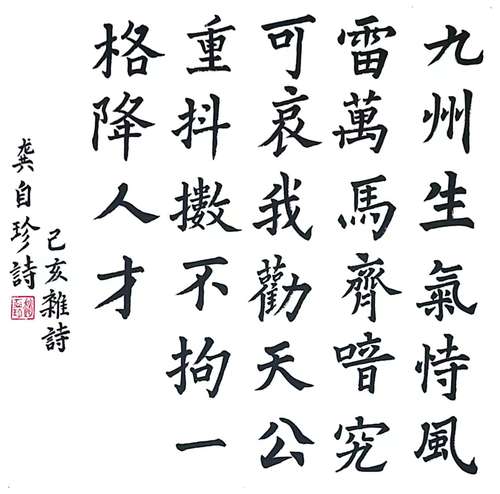 九州生氣恃風
雷萬馬齊喑究
可哀我勸天公
重抖擻不拘一
格降人才
己亥雜詩
龚自珍詩